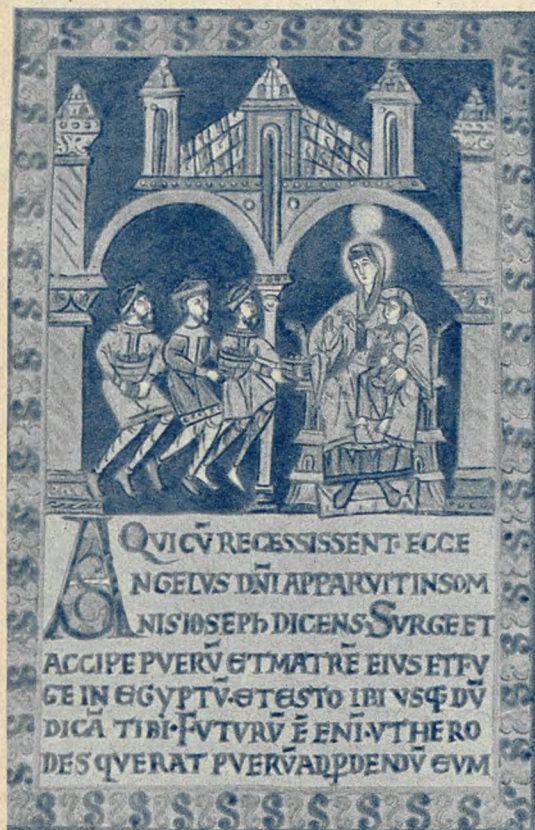 QVI CṼ RECESSISSENT· ECCE
ANGELVS DÑI APPARVIT IN SOM
NIS IOSEPh DICENS· SVRGE ET
ACCIPE PVERṼ ET MATRẼ EIVS ET FV
GE IN EGYPTṼ· ET ESTO IBI VSQ DṼ
DICÃ TIBI· FVTVRṼ Ẽ ENĨ· VT HERO
DES QVERAT PVERṼ AD PDENDṼ EVM